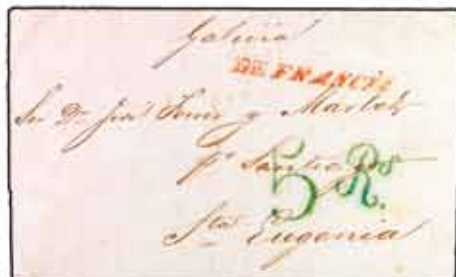 Galicia
DE FRANCIA
Sr. Dn. José
pr. Santiago
5 Rs.
Sta. Eugenia